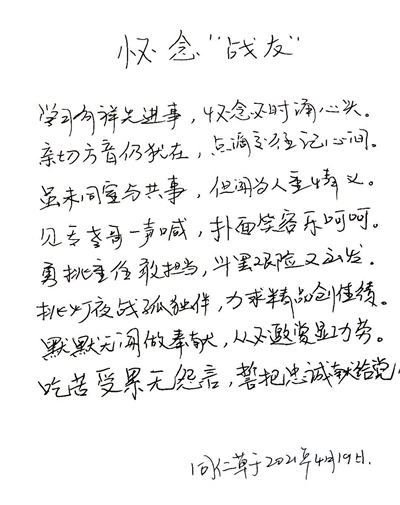 怀念"战友"
学习向祥先进事，怀念不时涌心头。
亲切方音仍犹在，点滴永往记心间。
虽未同室与共事，但闻为人重情义。
见专老哥一声喊，扑面笑容乐呵呵。
勇挑重任敢担当，斗罢艰险又出发。
挑灯夜战孤独伴，力求精品创佳绩。
默默无闻做奉献，从不邀赏显功劳。
吃苦受累无怨言，誓把忠诚献给党
同仁草于2021年4月19日.